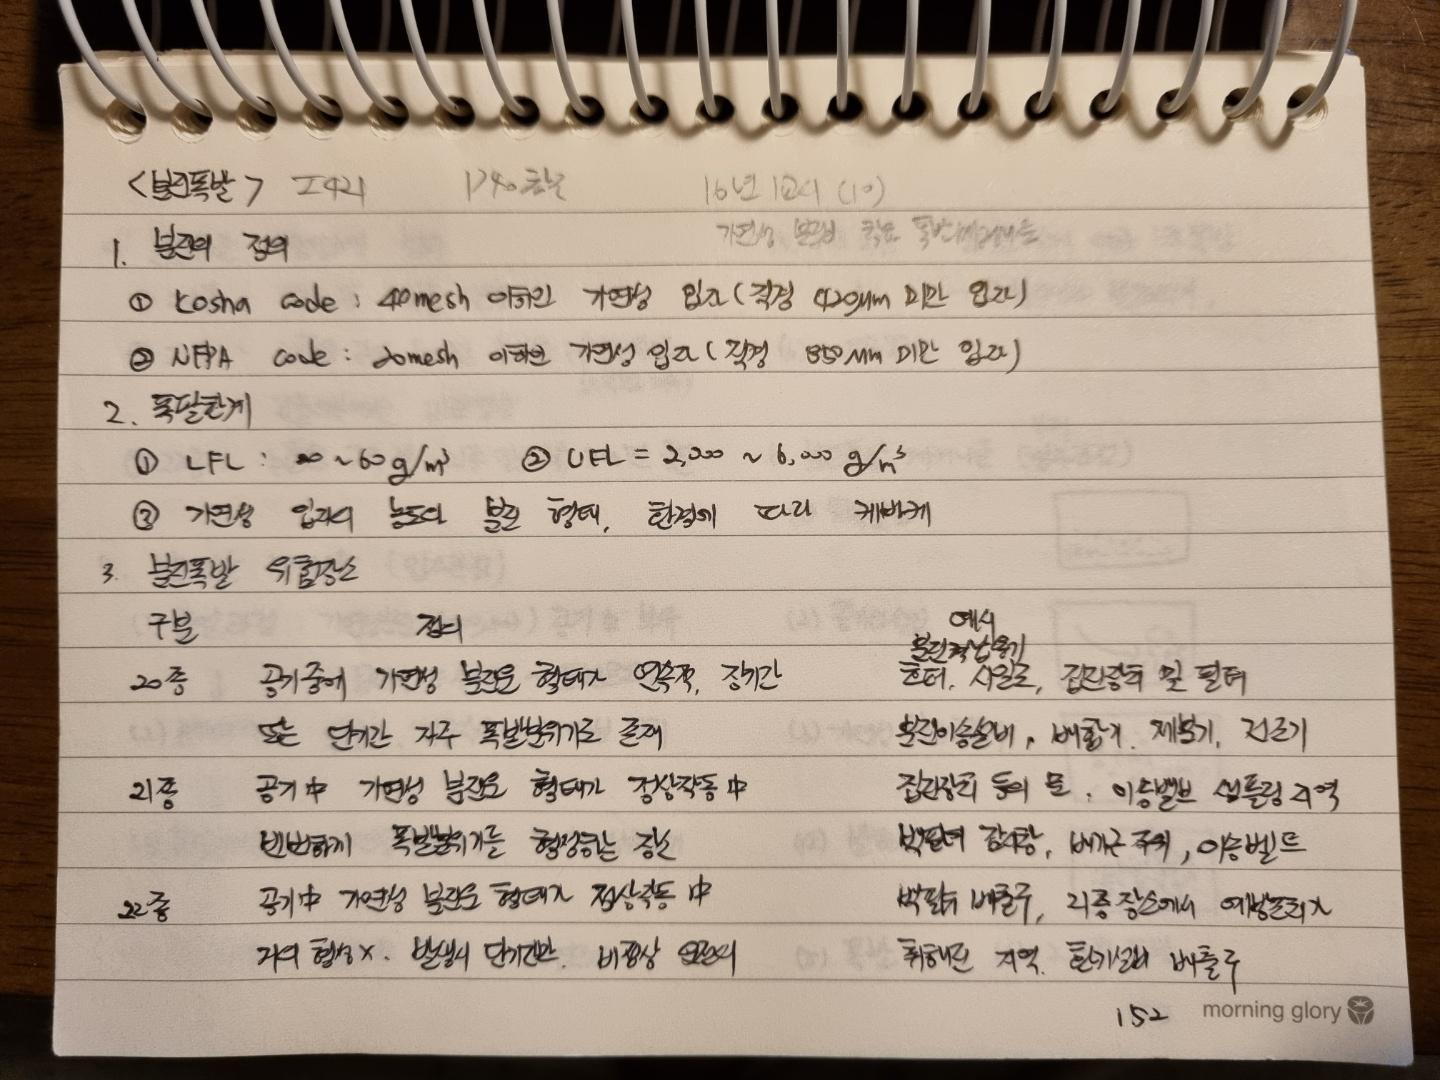 <분진폭발> I421 16년 1교시 (10)
가연성 분진
1. 분진의 정의
① Kosha code : 40mesh 이하인 가연성 입자(직경 420μm 미만 입자)
② NFPA code : 20mesh 이하인 가연성 입자(직경 850μm 미만 입자)
2. 폭발한계
① LFL : 20 ~ 60 g/m³ ② UFL = 2,000 ~ 6,000 g/m³
③ 가연성 입자의 농도와 분진 형태, 환경에 따라 케바케
3. 분진폭발 위험장소
구분 정의 예시
분진적납용기
20종 공기중에 가연성 분진운 형태가 연속적, 장기간 호퍼, 사일로, 집진장치 및 필터
또는 단기간 자주 폭발분위기로 존재 분진이송설비, 배합기, 제분기, 건조기
21종 공기中 가연성 분진운 형태가 정상작동中 집진장치 등의 문, 이송밸브 샘플링 지역
빈번하게 폭발분위기를 형성하는 장소 백필터 배기근 주위, 이송벨트
22종 공기中 가연성 분진운 형태가 정상작동中 백필터 배출구, 21종 장소에서 예방조치가
거의 형성X. 발생시 단기간만, 비정상 운전시 취해진 지역, 환기설비 배출구
152 morning glory